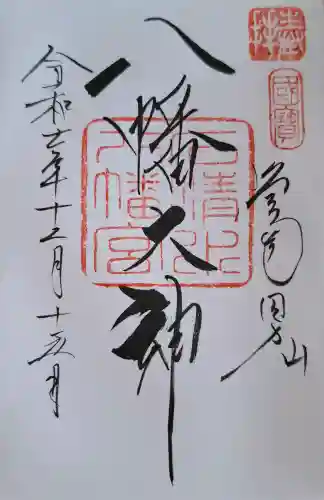 國寶
男山
八幡大神
石清水
八幡宮
令和七年十二月十五日